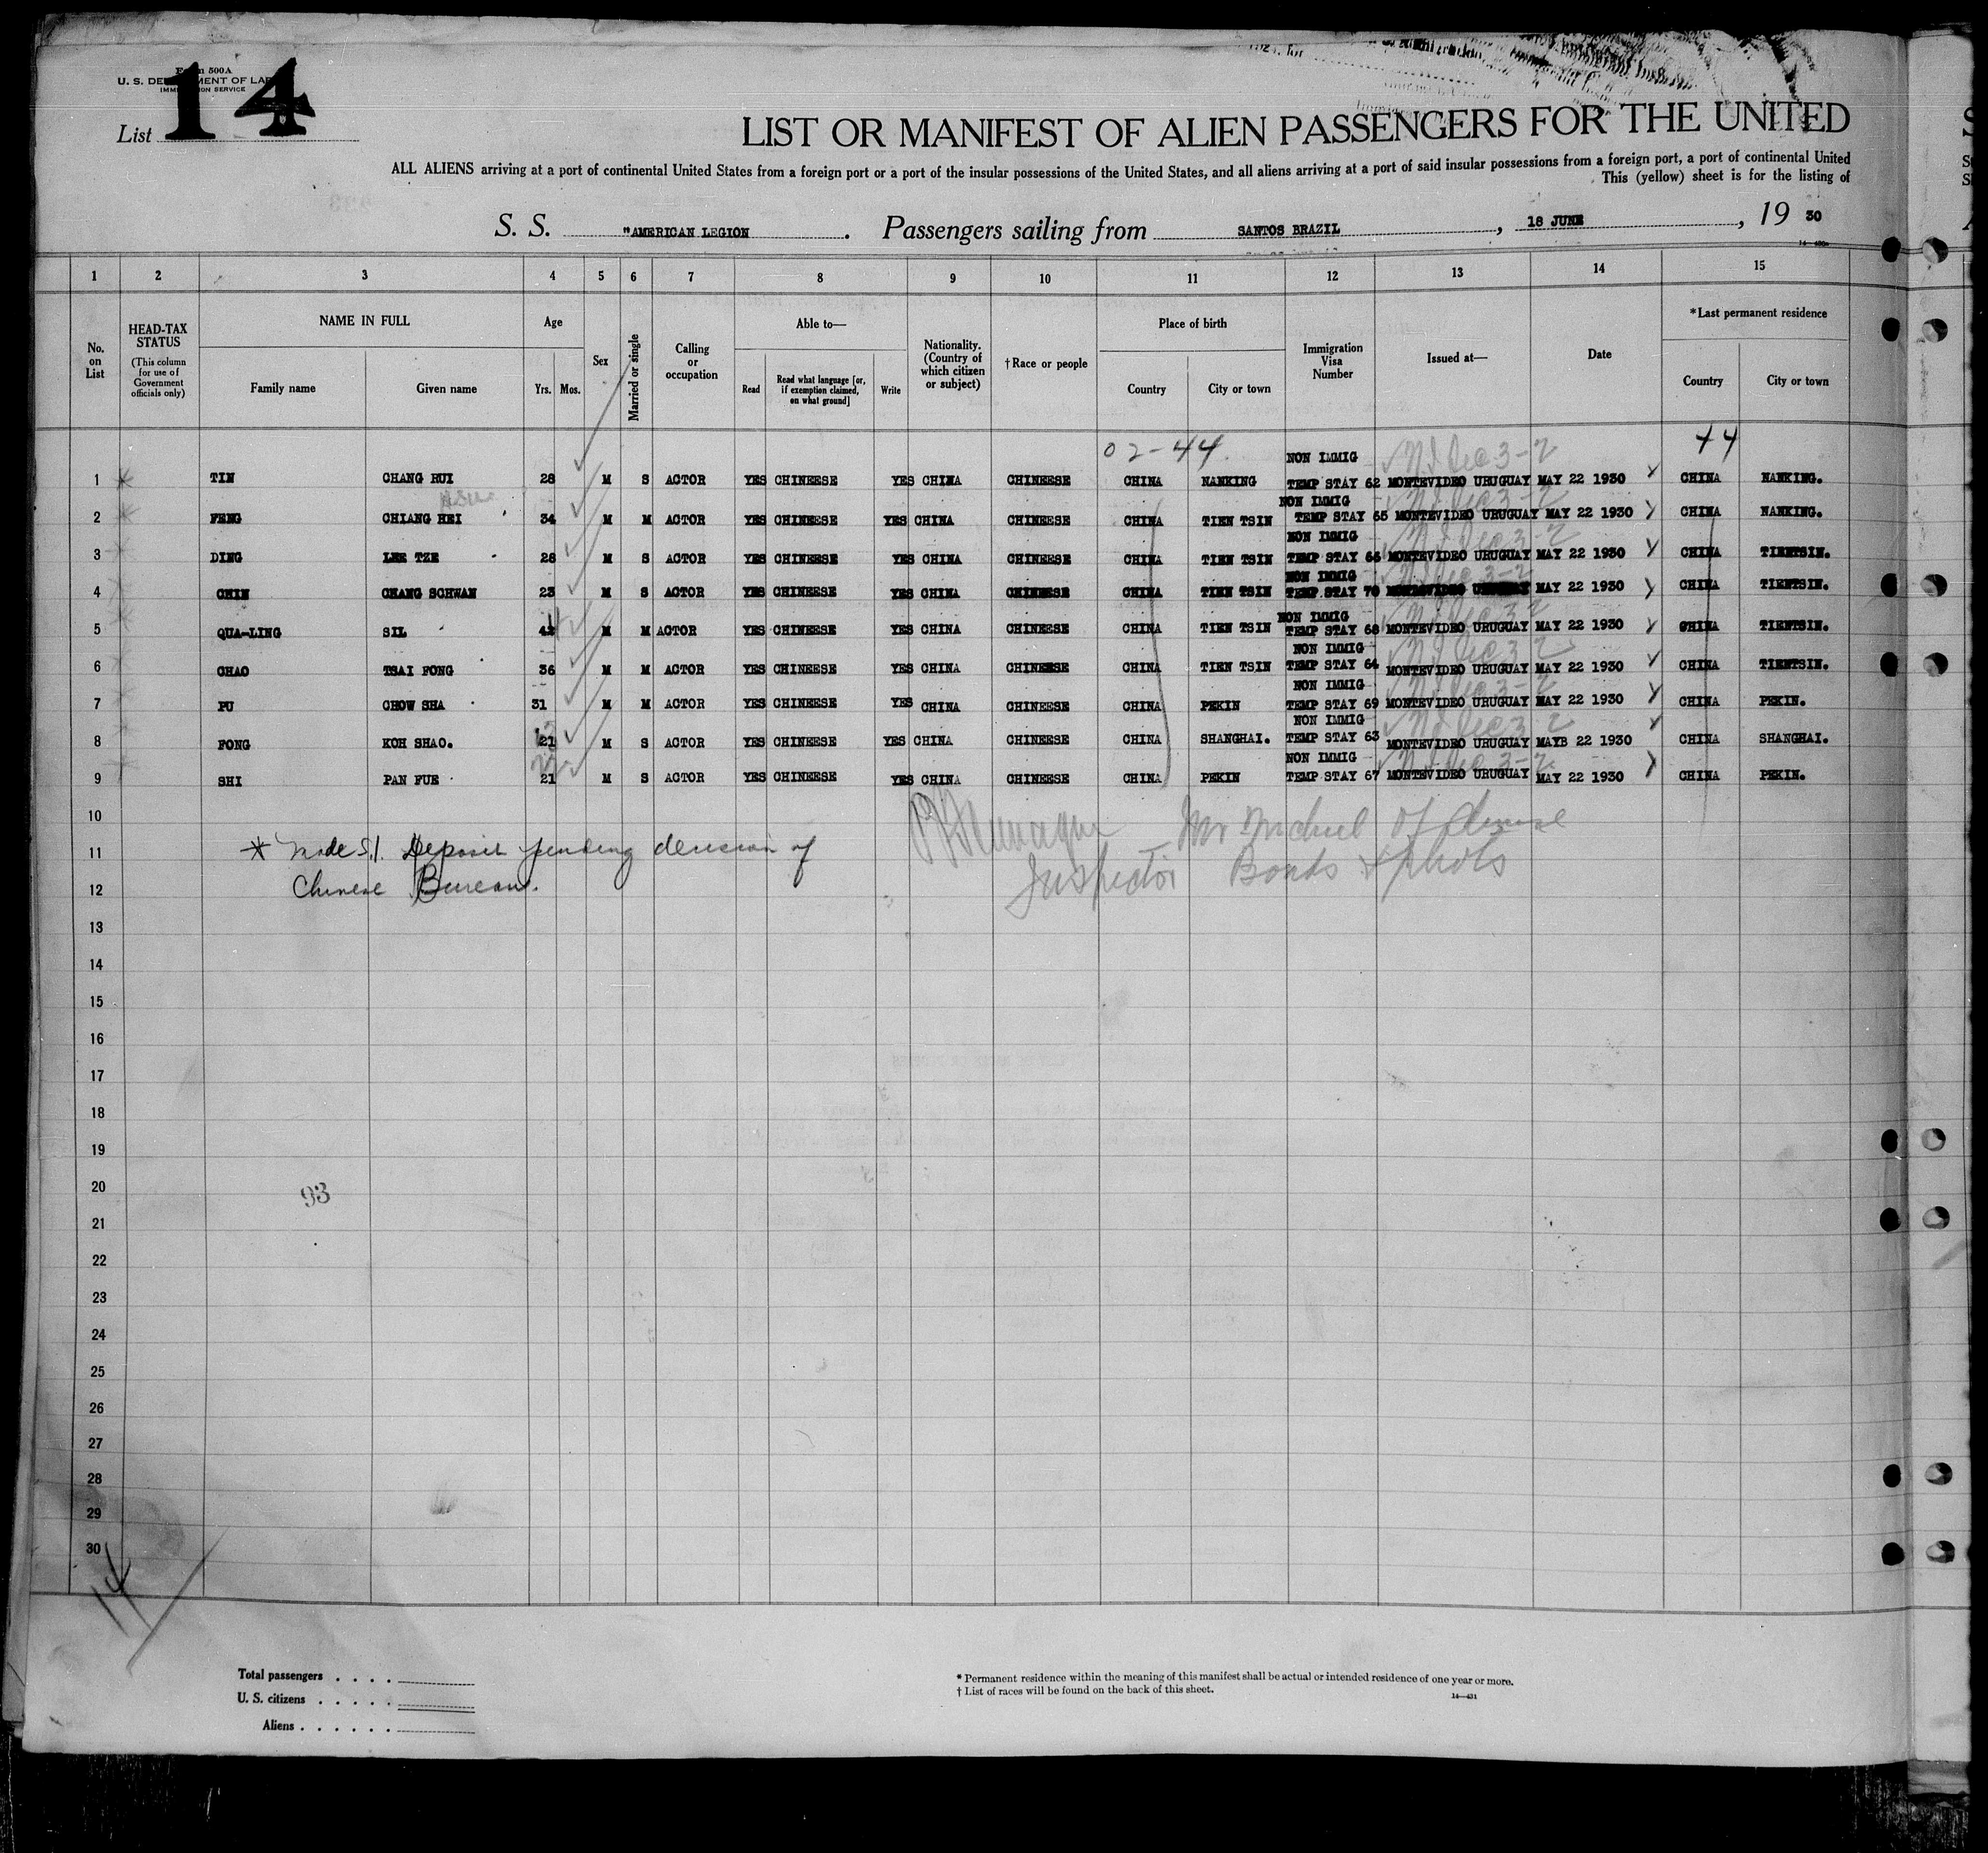 Form 500A
U. S. DEPARTMENT OF LABOR
IMMIGRATION SERVICE
List 14
LIST OR MANIFEST OF ALIEN PASSENGERS FOR THE UNITED
ALL ALIENS arriving at a port of continental United States from a foreign port or a port of the insular possessions of the United States, and all aliens arriving at a port of said insular possessions from a foreign port, a port of continental United
This (yellow) sheet is for the listing of
S. S. "AMERICAN LEGION . Passengers sailing from SANTOS BRAZIL , 18 JUNE , 19 30
1 2 3 4 5 6 7 8 9 10 11 12 13 14 15
No. on List
HEAD-TAX STATUS (This column for use of Government officials only)
NAME IN FULL Family name Given name
Age Yrs. Mos.
Sex
Married or single
Calling or occupation
Able to— Read Read what language [or, if exemption claimed, on what ground] Write
Nationality. (Country of which citizen or subject)
† Race or people
Place of birth Country City or town
Immigration Visa Number
Issued at—
Date
* Last permanent residence Country City or town
02-44. 44
NON IMMIG
1 TIN CHANG HUI 28 M S ACTOR YES CHINEESE YES CHINA CHINEESE CHINA NANKING TEMP STAY 62 MONTEVIDEO URUGUAY MAY 22 1930 CHINA NANKING.
NON IMMIG
2 FENG CHIANG HEI 34 M M ACTOR YES CHINEESE YES CHINA CHINEESE CHINA TIEN TSIN TEMP STAY 65 MONTEVIDEO URUGUAY MAY 22 1930 CHINA NANKING.
NON IMMIG
3 DING LEE TZE 28 M S ACTOR YES CHINEESE YES CHINA CHINEESE CHINA TIEN TSIN TEMP STAY 66 MONTEVIDEO URUGUAY MAY 22 1930 CHINA TIENTSIN.
NON IMMIG
4 CHIN CHANG SCHWAN 23 M S ACTOR YES CHINEESE YES CHINA CHINEESE CHINA TIEN TSIN TEMP STAY 70 MONTEVIDEO URUGUAY MAY 22 1930 CHINA TIENTSIN.
NON IMMIG
5 QUA-LING SIL M M ACTOR YES CHINEESE YES CHINA CHINEESE CHINA TIEN TSIN TEMP STAY 68 MONTEVIDEO URUGUAY MAY 22 1930 CHINA TIENTSIN.
NON IMMIG
6 CHAO TSAI FONG 36 M M ACTOR YES CHINEESE YES CHINA CHINEESE CHINA TIEN TSIN TEMP STAY 64 MONTEVIDEO URUGUAY MAY 22 1930 CHINA TIENTSIN.
NON IMMIG
7 PU CHOW SHA 31 M M ACTOR YES CHINEESE YES CHINA CHINEESE CHINA PEKIN TEMP STAY 69 MONTEVIDEO URUGUAY MAY 22 1930 CHINA PEKIN.
NON IMMIG
8 FONG KOH SHAO. 21 M S ACTOR YES CHINEESE YES CHINA CHINEESE CHINA SHANGHAI. TEMP STAY 63 MONTEVIDEO URUGUAY MAYB 22 1930 CHINA SHANGHAI.
NON IMMIG
9 SHI PAN FUE 21 M S ACTOR YES CHINEESE YES CHINA CHINEESE CHINA PEKIN TEMP STAY 67 MONTEVIDEO URUGUAY MAY 22 1930 CHINA PEKIN.
10
11 * Made S.I. Deposit pending decision of
12 Chinese Bureau. Inspector Bonds & photos
13
14
15
16
17
18
19
20 93
21
22
23
24
25
26
27
28
29
30
14
Total passengers . . . .
U. S. citizens . . . . .
Aliens . . . . . .
* Permanent residence within the meaning of this manifest shall be actual or intended residence of one year or more.
† List of races will be found on the back of this sheet.
14—431